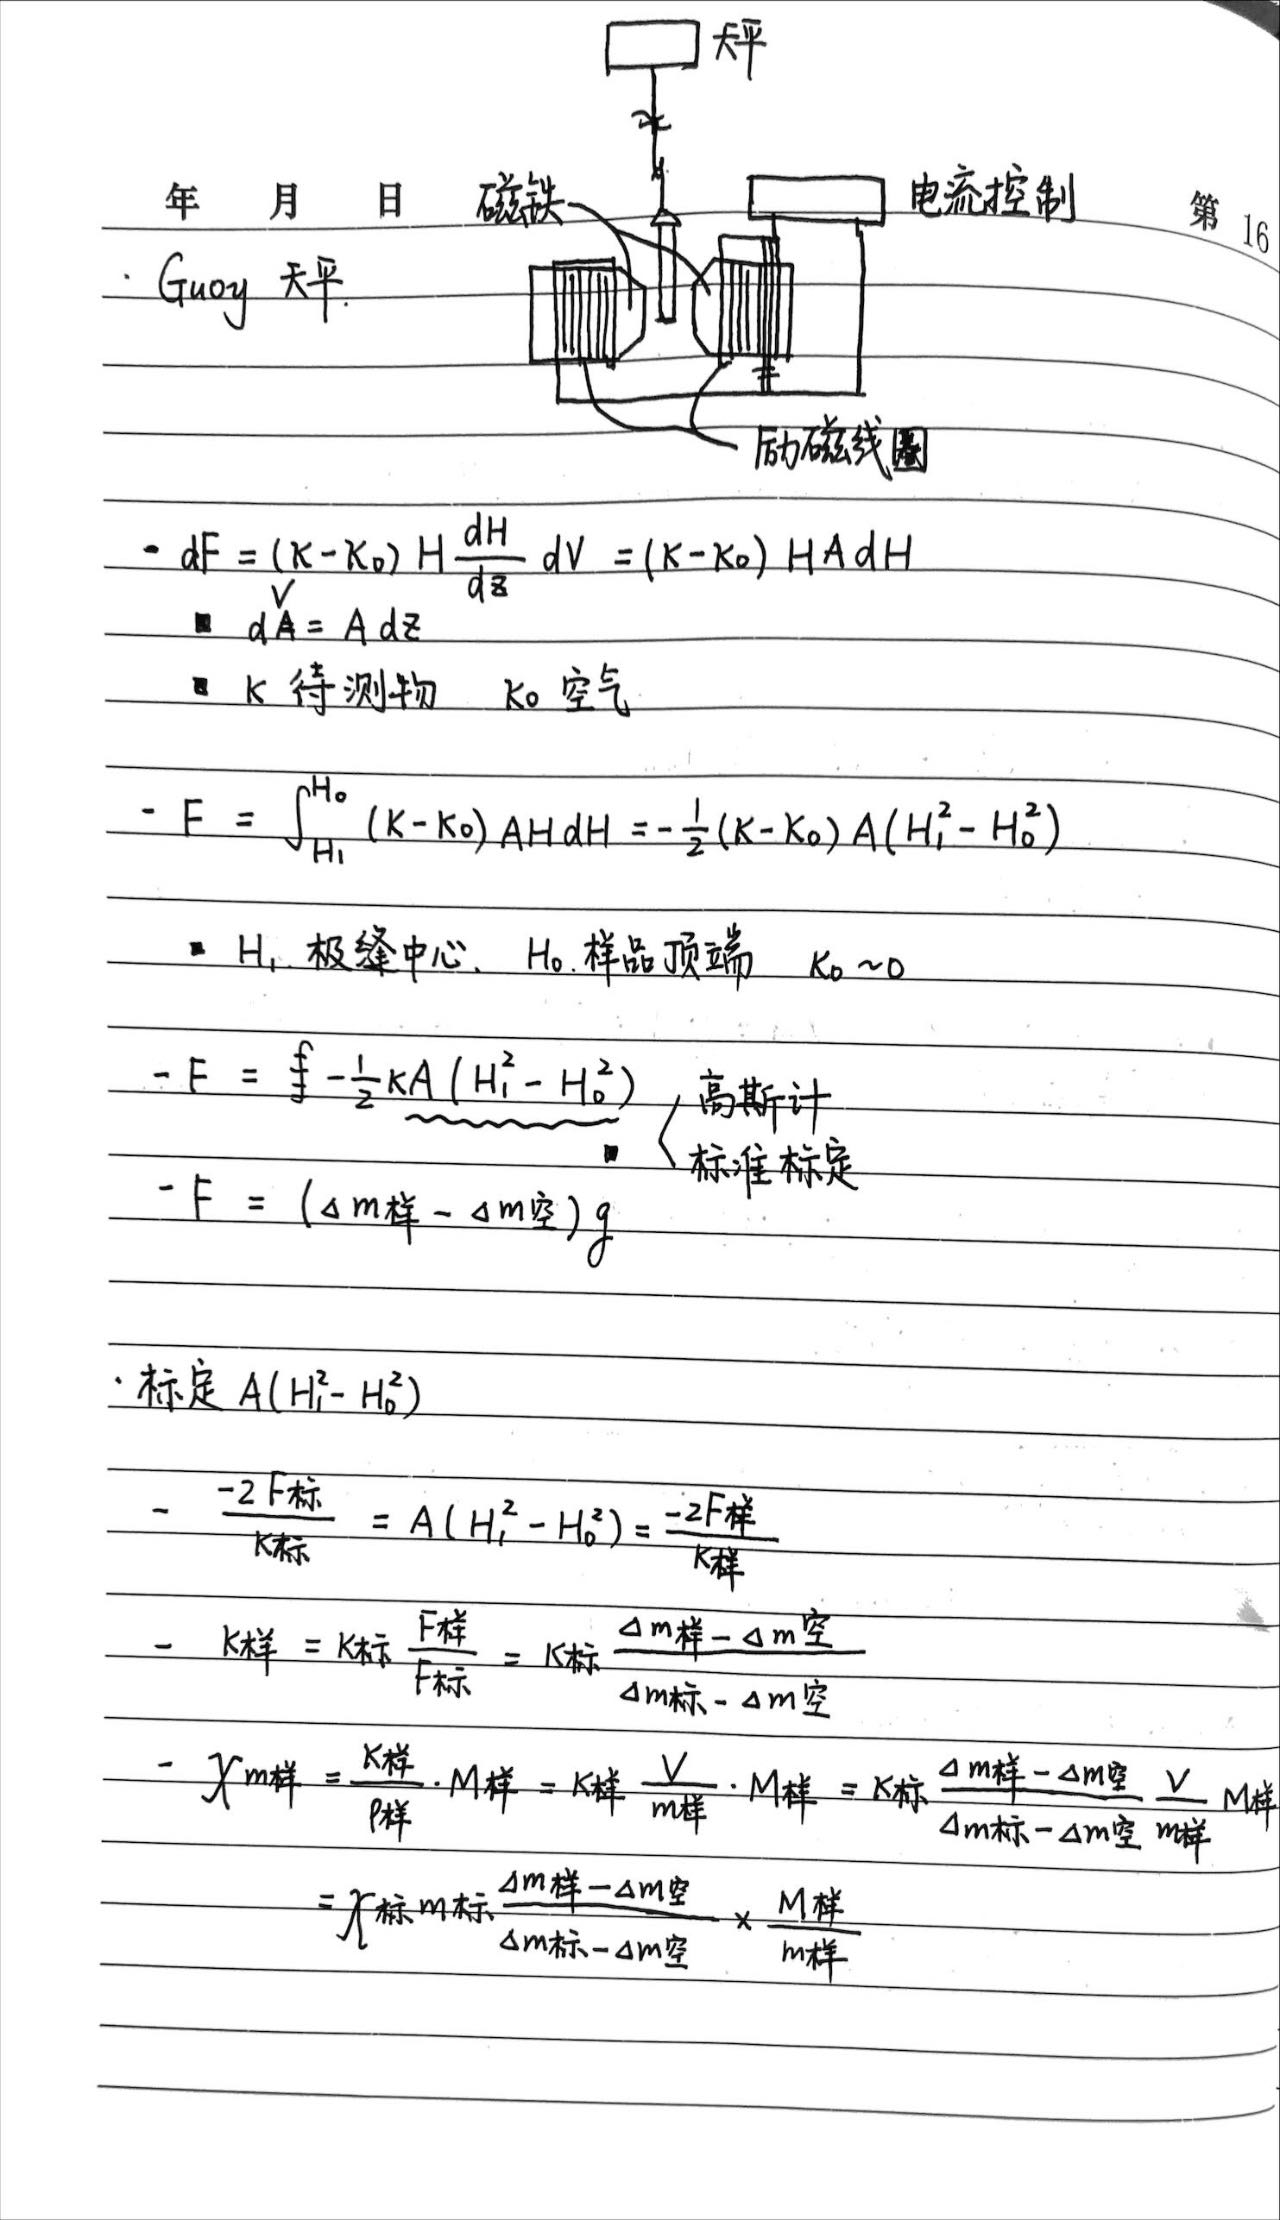 天平
年 月 日 磁铁 电流控制 第 16
· Guoy 天平.
励磁线圈
- dF = (K-K₀) H dH/dz dV = (K-K₀) H A dH
▪ dV = A dz
▪ K 待测物 K₀ 空气
- F = ∫_{H₁}^{H₀} (K-K₀) AH dH = -1/2 (K-K₀) A (H₁² - H₀²)
▪ H₁. 极缝中心. H₀. 样品顶端 K₀ ~ 0
- F = -1/2 KA (H₁² - H₀²) 高斯计
▪ 标准标定
- F = (Δm样 - Δm空) g
· 标定 A(H₁² - H₀²)
- -2F标/K标 = A(H₁² - H₀²) = -2F样/K样
- K样 = K标 F样/F标 = K标 (Δm样 - Δm空)/(Δm标 - Δm空)
- χm样 = K样/ρ样 · M样 = K样 V/m样 · M样 = K标 (Δm样 - Δm空)/(Δm标 - Δm空) V/m样 M样
= χ标 m标 (Δm样 - Δm空)/(Δm标 - Δm空) × M样/m样